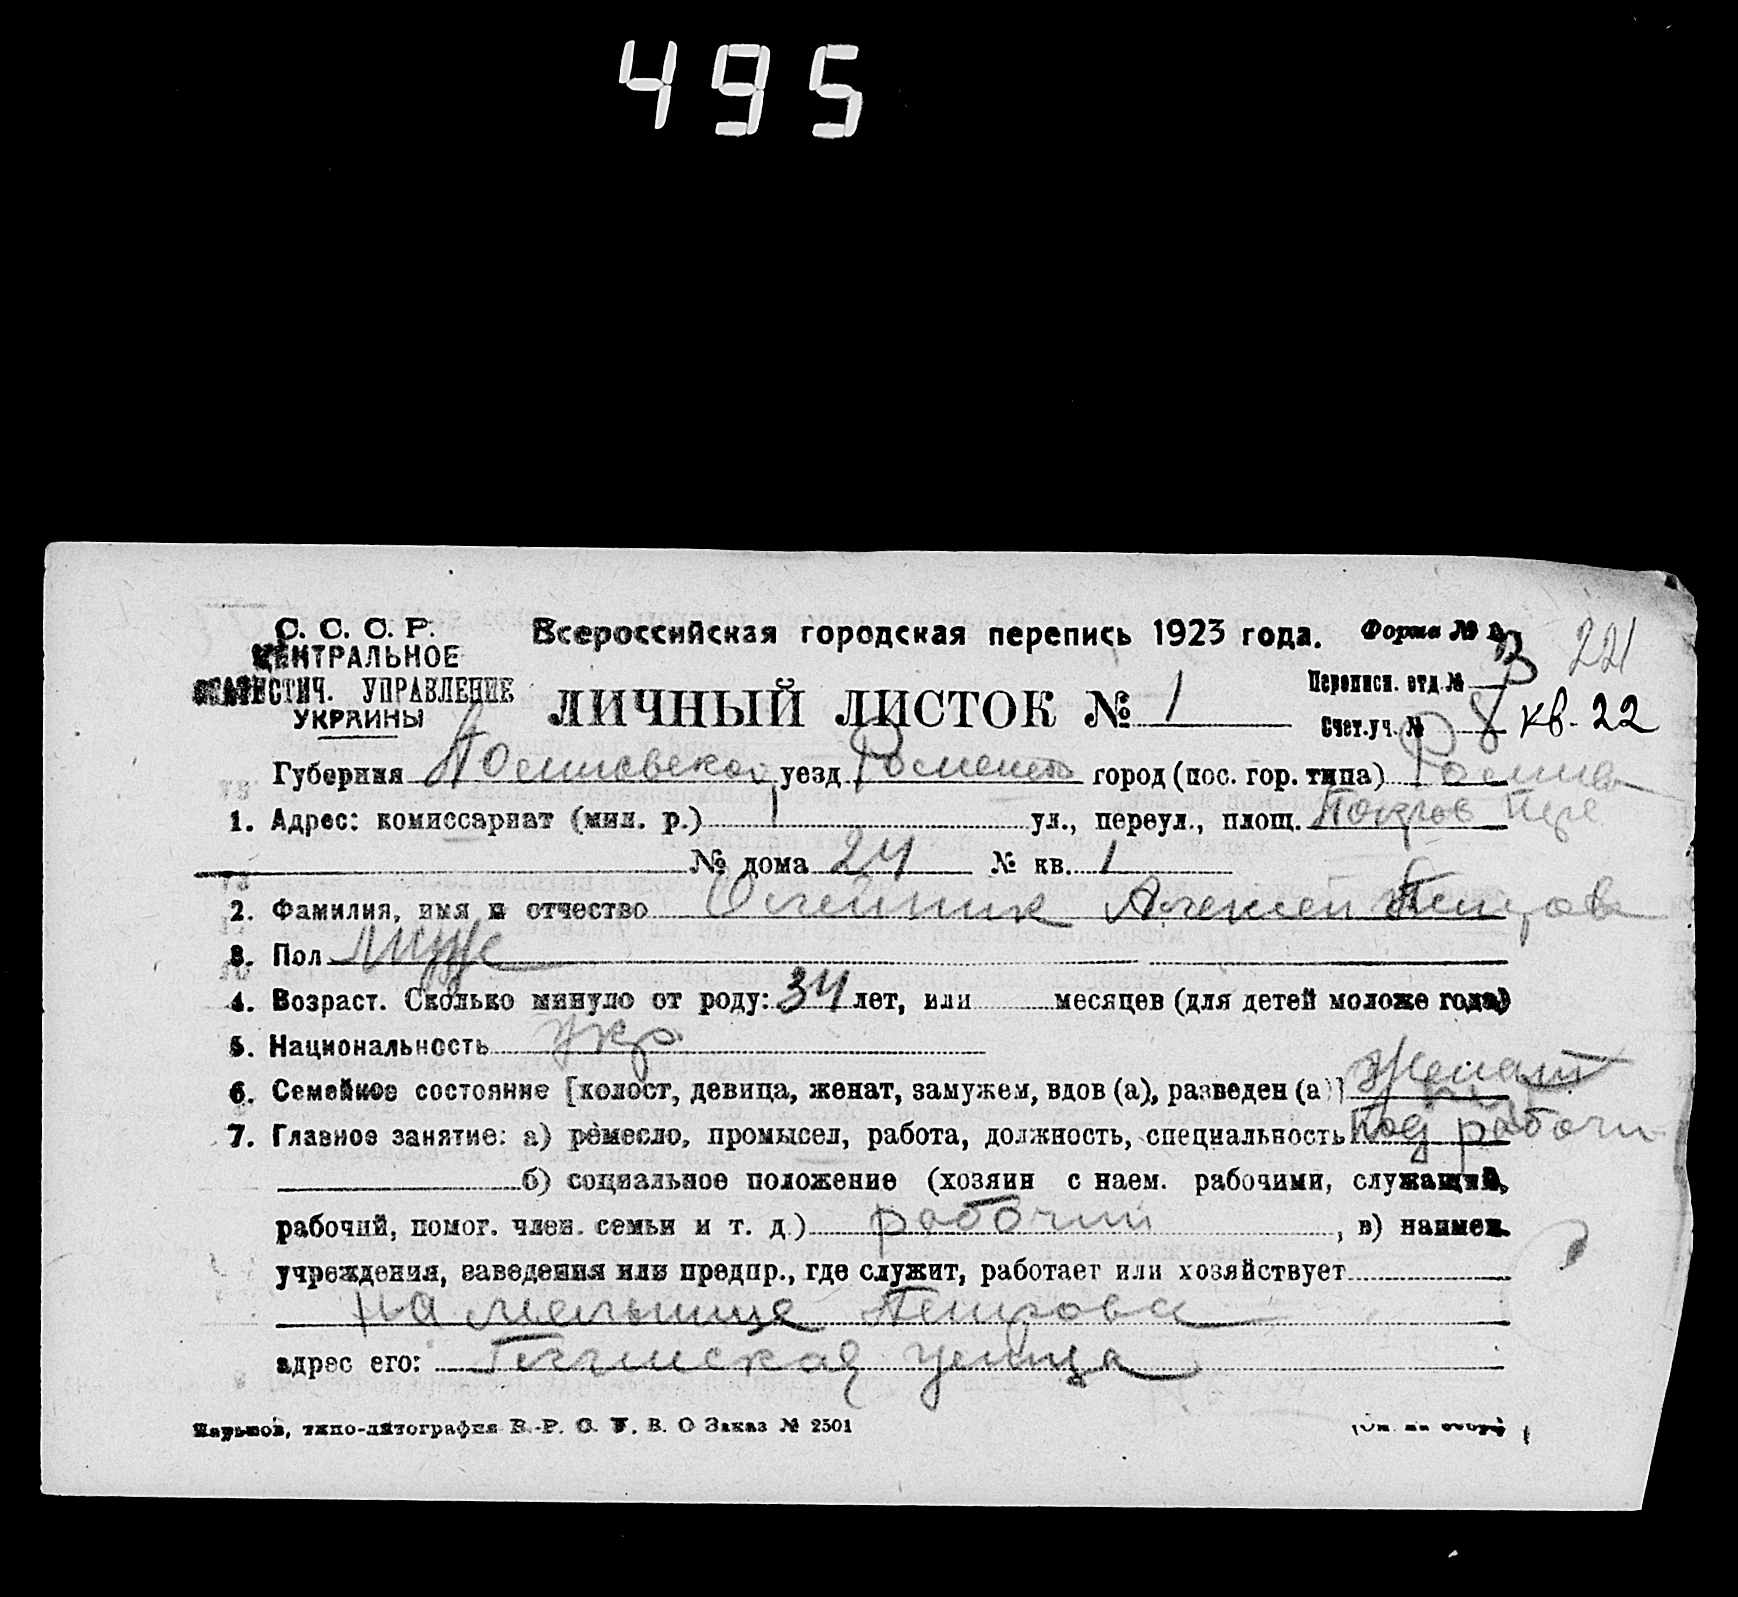 495
С. С. С. Р.
ЦЕНТРАЛЬНОЕ
СТАТИСТИЧ. УПРАВЛЕНИЕ
УКРАИНЫ
Всероссийская городская перепись 1923 года.
Форма № 221
ЛИЧНЫЙ ЛИСТОК № 1
Переписн. отд. №
Счет. уч. № 8 кв. 22
Губерния Полтавской уезд Роменск город (пос. гор. типа) Ромны
1. Адрес: комиссариат (мил. р.) 1 ул., переул., площ. Покров пере
№ дома 24 № кв. 1
2. Фамилия, имя и отчество Олейник Алексей Петров
3. Пол муж
4. Возраст. Сколько минуло от роду: 34 лет, или месяцев (для детей моложе года)
5. Национальность укр.
6. Семейное состояние [холост, девица, женат, замужем, вдов (а), разведен (а)] Женат
7. Главное занятие: а) ремесло, промысел, работа, должность, специальность Под рабочи
б) социальное положение (хозяин с наем. рабочими, служащий,
рабочий, помог. член. семьи и т. д.) рабочий, в) наимен.
учреждения, заведения или предпр., где служит, работает или хозяйствует
на мельнице Петрова
адрес его: улица
Харьков, типо-литография В.-Р. С. У. В. О Заказ № 2501